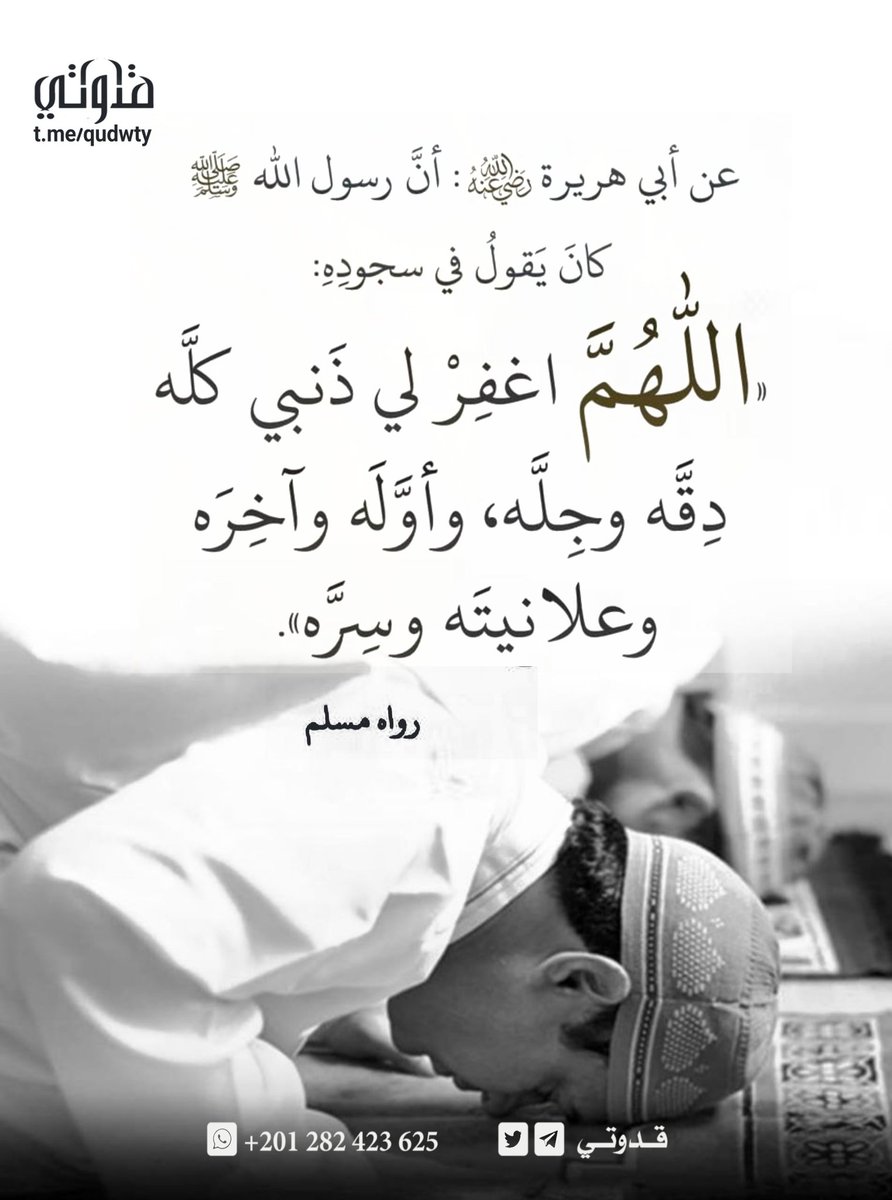 قدوتي
t.me/qudwty
عن أبي هريرة رَضِيَ اللهُ عَنْهُ : أنَّ رسول الله ﷺ
كانَ يَقولُ في سجودِهِ:
«اللّٰهُمَّ اغفِرْ لي ذَنبي كلَّه
دِقَّه وجِلَّه، وأوَّلَه وآخِرَه
وعلانيتَه وسِرَّه».
رواه مسلم
+201 282 423 625 قـدوتـي